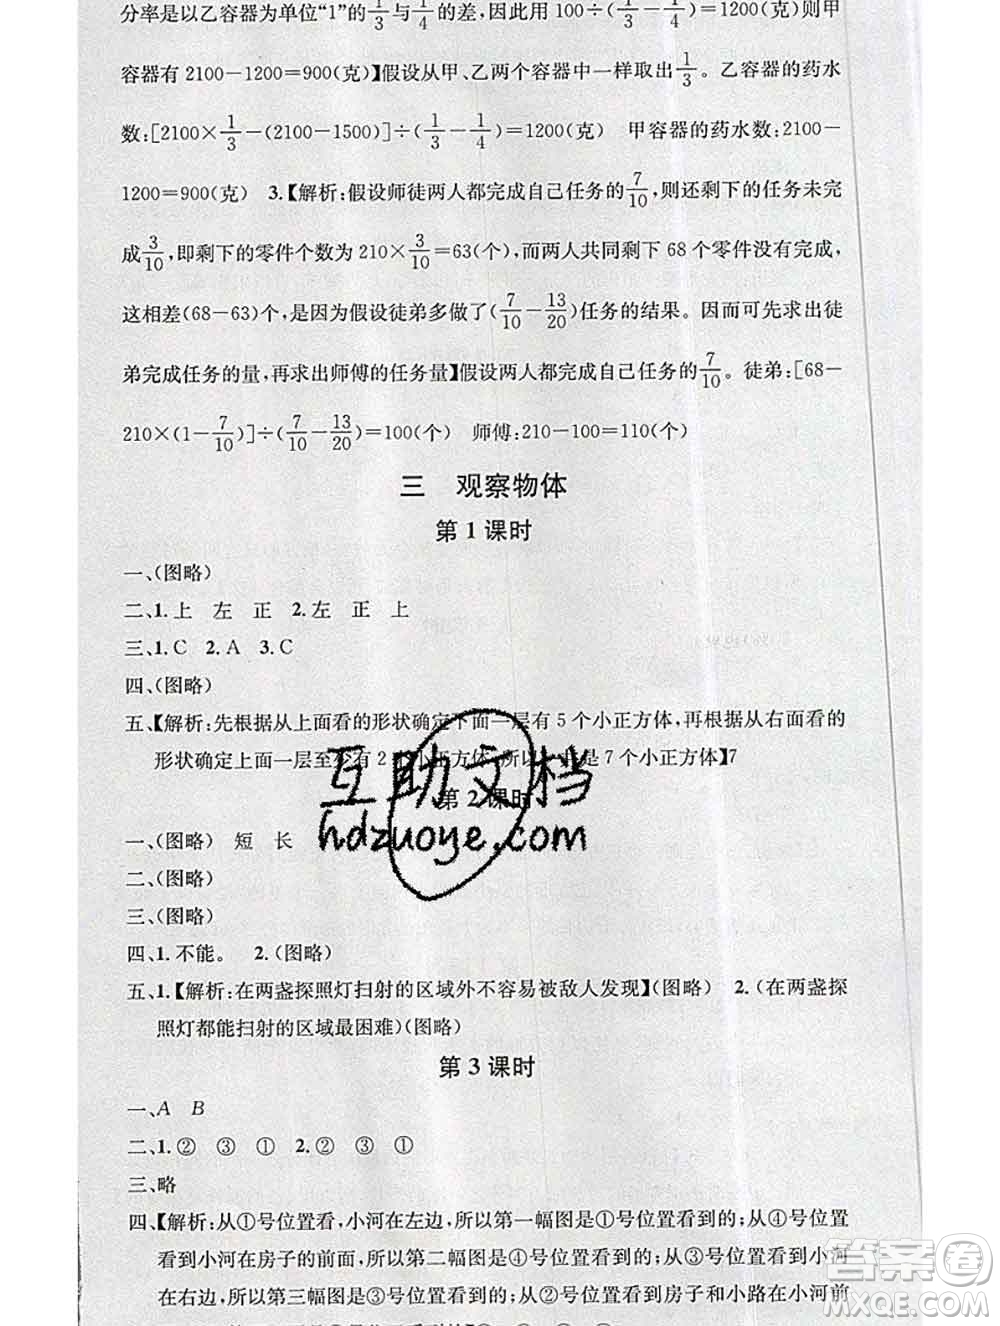 分率是以乙容器为单位“1”的1/3与1/4的差,因此用 100÷(1/3−1/4)=1200(克)则甲
容器有 2100−1200=900(克)】假设从甲、乙两个容器中一样取出1/3。乙容器的药水
数:[2100×1/3−(2100−1500)]÷(1/3−1/4)=1200(克) 甲容器的药水数:2100−
1200=900(克) 3.【解析:假设师徒两人都完成自己任务的7/10,则还剩下的任务未完
成3/10,即剩下的零件个数为 210×3/10=63(个),而两人共同剩下 68 个零件没有完成,
这相差(68−63)个,是因为假设徒弟多做了(7/10−13/20)任务的结果。因而可先求出徒
弟完成任务的量,再求出师傅的任务量】假设两人都完成自己任务的7/10。徒弟:[68−
210×(1−7/10)]÷(7/10−13/20)=100(个) 师傅:210−100=110(个)
三 观察物体
第 1 课时
一、(图略)
二、1.上 左 正 2.左 正 上
三、1.C 2.A 3.C
四、(图略)
五、【解析:先根据从上面看的形状确定下面一层有 5 个小正方体,再根据从右面看的
形状确定上面一层至少有 2 个小正方体,所以一共是 7 个小正方体】7
互助文档
hdzuoye.com
第 2 课时
一、(图略) 短 长
二、(图略)
三、(图略)
四、1.不能。 2.(图略)
五、1.【解析:在两盏探照灯扫射的区域外不容易被敌人发现】(图略) 2.(在两盏探
照灯都能扫射的区域最困难)(图略)
第 3 课时
一、A B
二、1.② ③ ① 2.② ③ ①
三、略
四、【解析:从①号位置看,小河在左边,所以第一幅图是①号位置看到的;从④号位置
看到小河在房子的前面,所以第二幅图是④号位置看到的;从③号位置看到小河
在右边,所以第三幅图是③号位置看到的;从②号位置看到房子和小路在小河前
答案圈
MXQE.COM